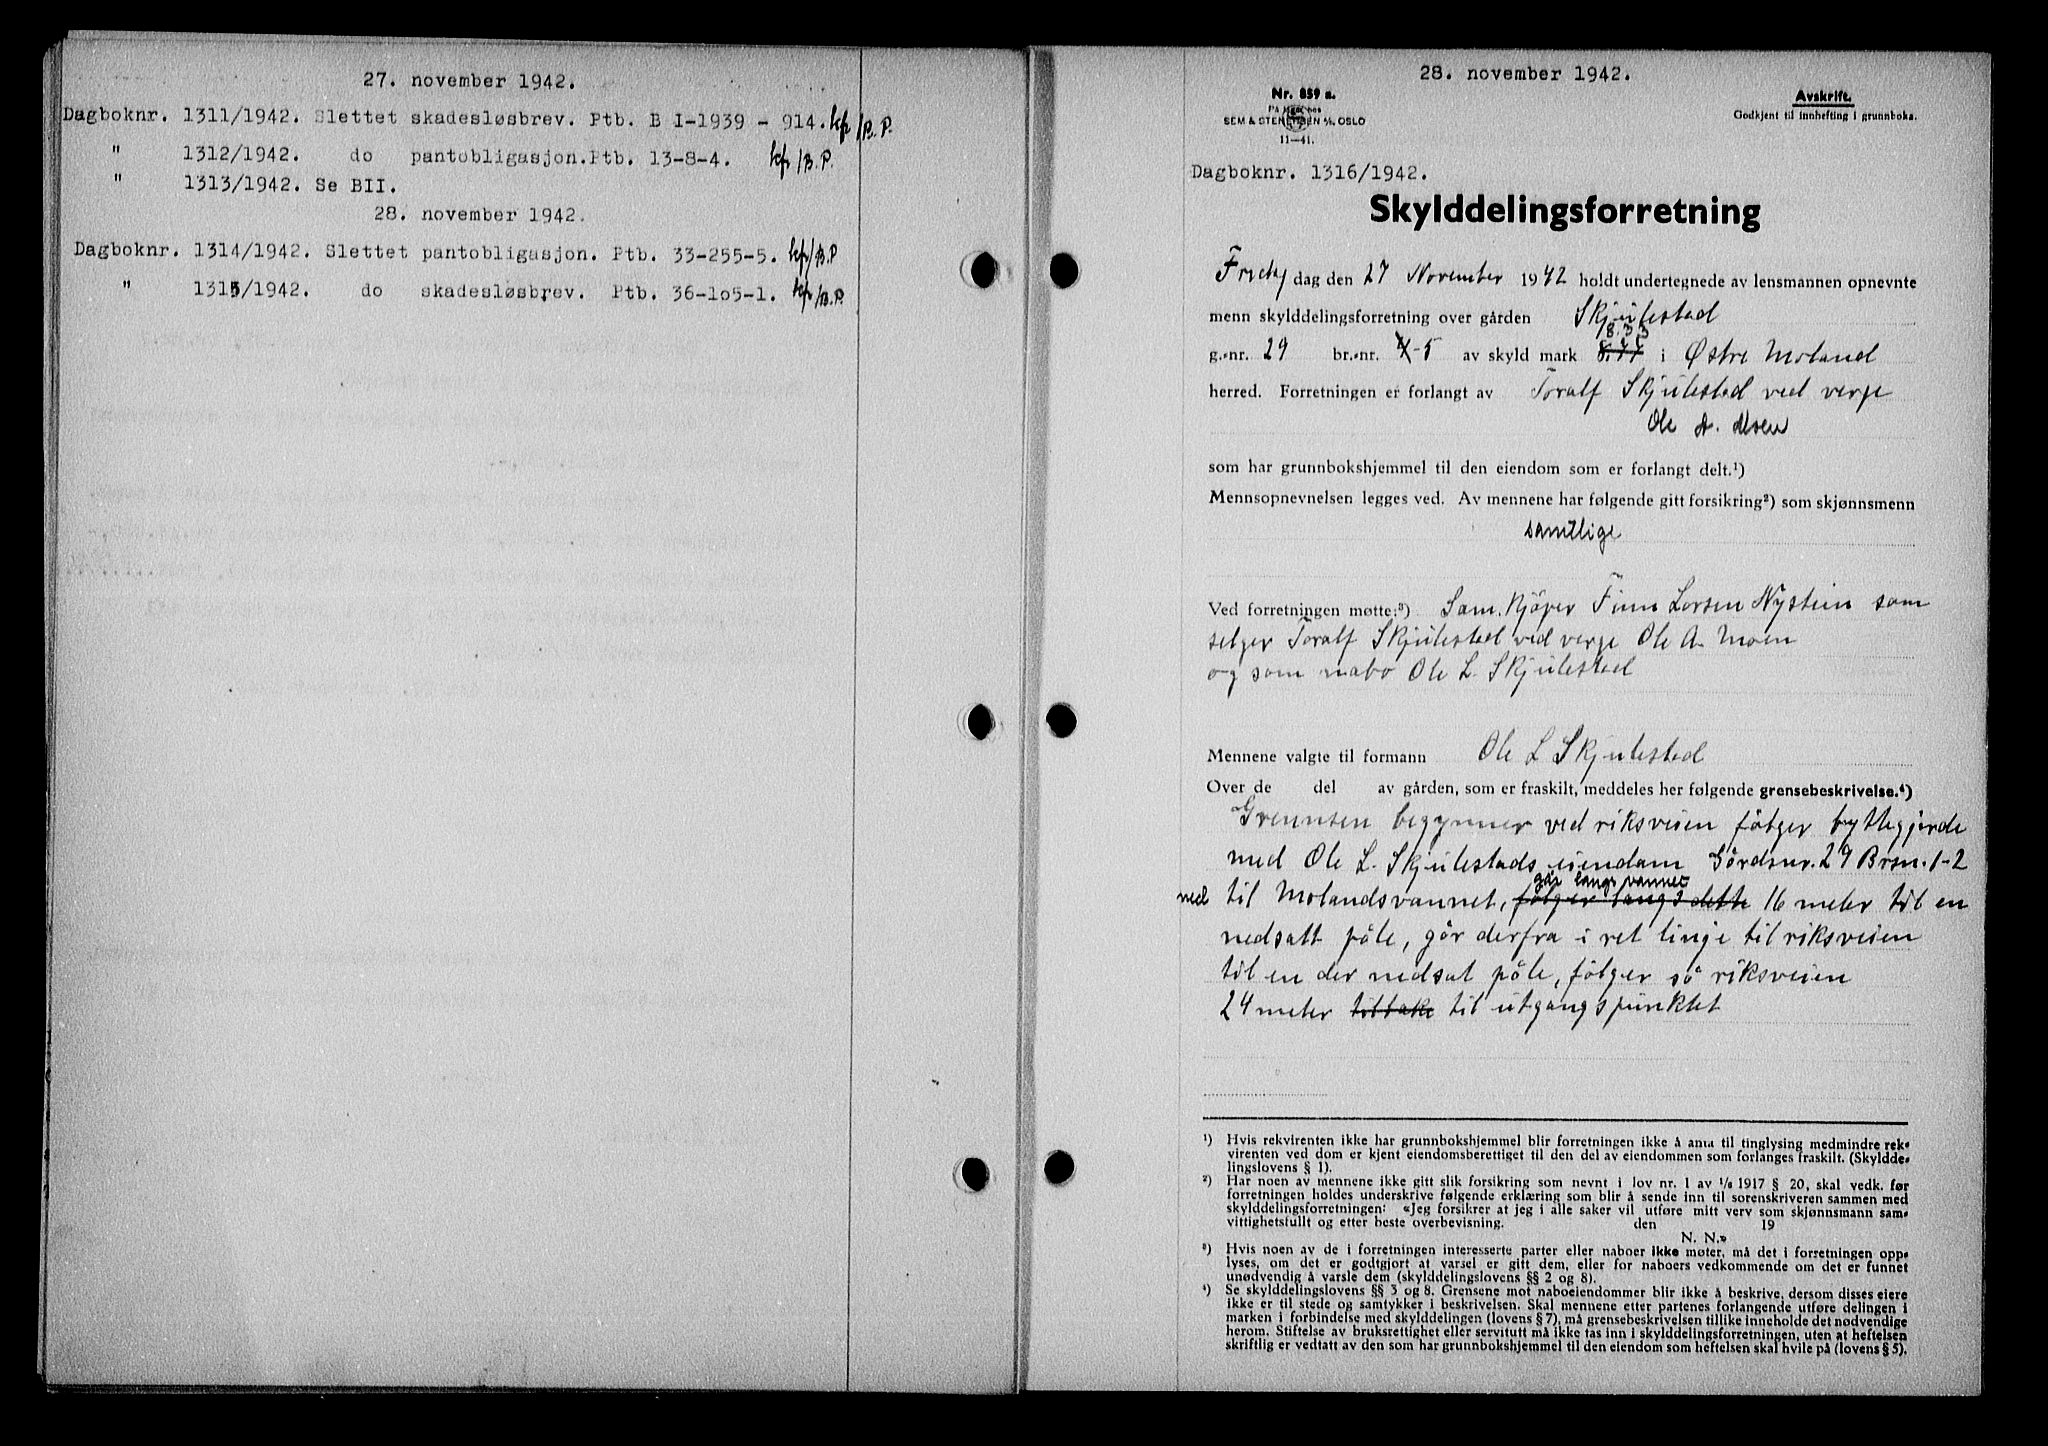 27. november 1942.
Dagboknr. 1311/1942. Slettet skadesløsbrev. Ptb. B I-1939 - 914. kfr/B.P.
" 1312/1942. do pantobligasjon. Ptb. 13-8-4. kfr/B.P.
" 1313/1942. Se BII.
28. november 1942.
Dagboknr. 1314/1942. Slettet pantobligasjon. Ptb. 33-255-5. kfr/B.P
" 1315/1942. do skadesløsbrev. Ptb. 36-105-1. kfr/B.P.
28. november 1942.
Nr. 859 a.
SEM & STENERSEN A/S, OSLO
11-41.
Avskrift.
Godkjent til innhefting i grunnboka.
Dagboknr. 1316/1942.
Skylddelingsforretning
Fredag dag den 27 November 1942 holdt undertegnede av lensmannen opnevnte
menn skylddelingsforretning over gården Skjulestad
8.33
g.-nr. 29 br.-nr. 4-5 av skyld mark i Østre Moland
herred. Forretningen er forlangt av Toralf Skjulestad ved verge
Ole A. Moen
som har grunnbokshjemmel til den eiendom som er forlangt delt.¹)
Mennsopnevnelsen legges ved. Av mennene har følgende gitt forsikring²) som skjønnsmenn
samtlige
Ved forretningen møtte:³) Som kjøper Finn Larsen Nystein som
selger Toralf Skjulestad ved verge Ole A. Moen
og som nabo Ole L. Skjulestad
Mennene valgte til formann Ole L Skjulestad
Over de del av gården, som er fraskilt, meddeles her følgende grensebeskrivelse.⁴)
Grennsen begynner ved riksveien følger byttegjerde
med Ole L. Skjulestads eiendom Gårdsnr. 29 Brsn. 1-2
går langs vannet
ned til Molandsvannet, følger langs dette 16 meter til en
nedsatt påle, går derfra i ret linje til riksveien
til en der nedsat påle, følger så riksveien
24 meter tilbake til utgangspunktet
¹) Hvis rekvirenten ikke har grunnbokshjemmel blir forretningen ikke å anta til tinglysing medmindre rek-
virenten ved dom er kjent eiendomsberettiget til den del av eiendommen som forlanges fraskilt. (Skyldde-
lingslovens § 1).
²) Har noen av mennene ikke gitt slik forsikring som nevnt i lov nr. 1 av 1/6 1917 § 20, skal vedk. før
forretningen holdes underskrive følgende erklæring som blir å sende inn til sorenskriveren sammen med
skylddelingsforretningen: «Jeg forsikrer at jeg i alle saker vil utføre mitt verv som skjønnsmann sam-
vittighetsfullt og etter beste overbevisning. den 19
N. N.»
³) Hvis noen av de i forretningen interesserte parter eller naboer ikke møter, må det i forretningen opp-
lyses, om det er godtgjort at varsel er gitt dem, eller for naboers vedkommende om det er funnet
unødvendig å varsle dem (skylddelingslovens §§ 2 og 8).
⁴) Se skylddelingslovens §§ 3 og 8. Grensene mot naboeiendommer blir ikke å beskrive, dersom disses eiere
ikke er til stede og samtykker i beskrivelsen. Skal mennene etter partenes forlangende utføre delingen i
marken i forbindelse med skylddelingen (lovens § 7), må grensebeskrivelsen tillike inneholde det nødvendige
herom. Stiftelse av bruksrettighet eller servitutt må ikke tas inn i skylddelingsforretningen, uten at heftelsen
skriftlig er vedtatt av den som har grunnbokshjemmel til den eiendom som heftelsen skal hvile på (lovens § 5).